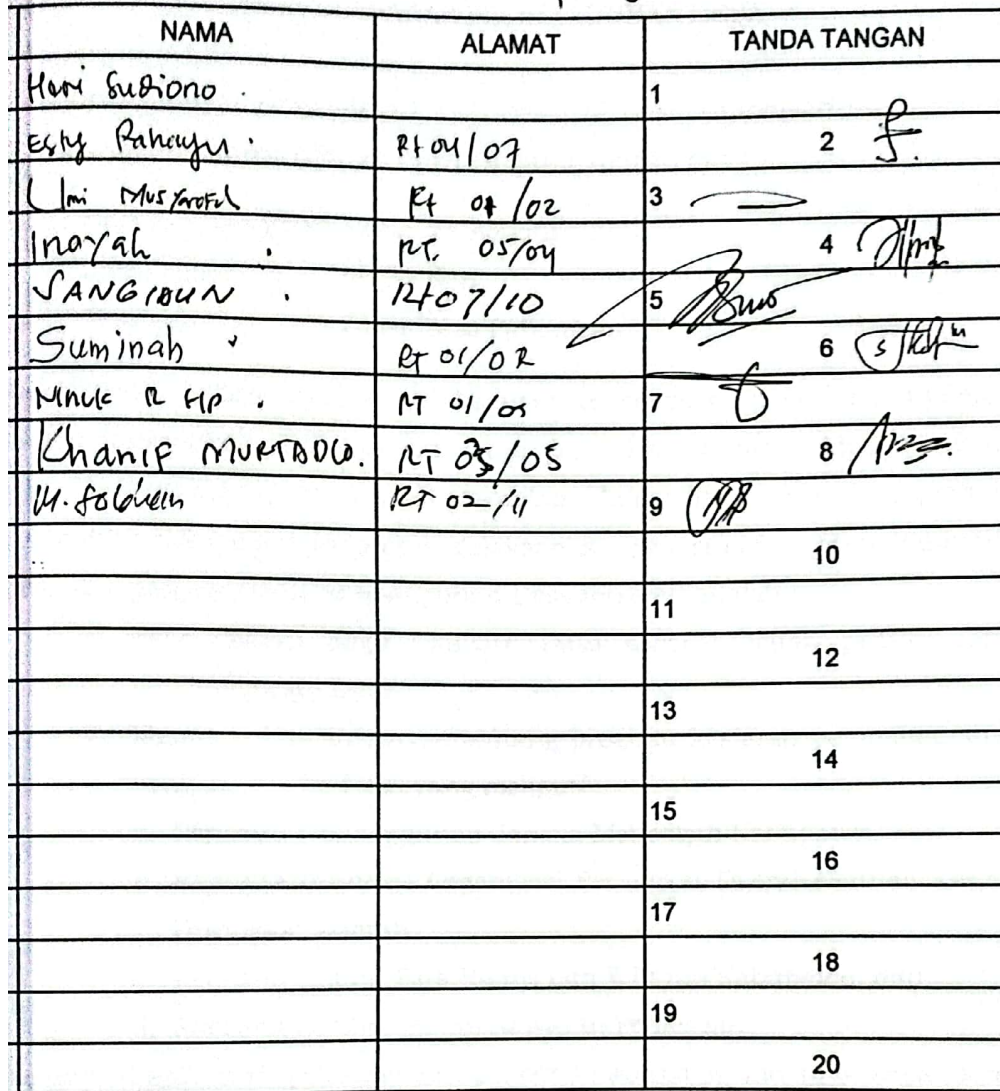 NAMA ALAMAT TANDA TANGAN
Hari Sudiono . 1
Esty Rahayu . Rt 04/07 2
Umi Musyarofah Rt 01/02 3
Inayah . RT. 05/04 4
SANGIDUN . Rt 07/10 5
Suminah RT 01/02 6
Ninuk R HP . RT 01/ 7
Khanif MURTADLO. RT 03/05 8
M. RT 02/11 9
10
11
12
13
14
15
16
17
18
19
20